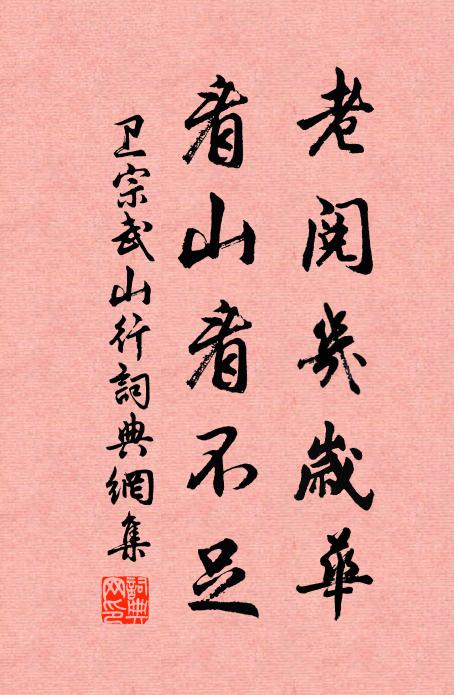 老閱幾歲華
看山看不足
卫宗武山行詞典網集
詞典網印